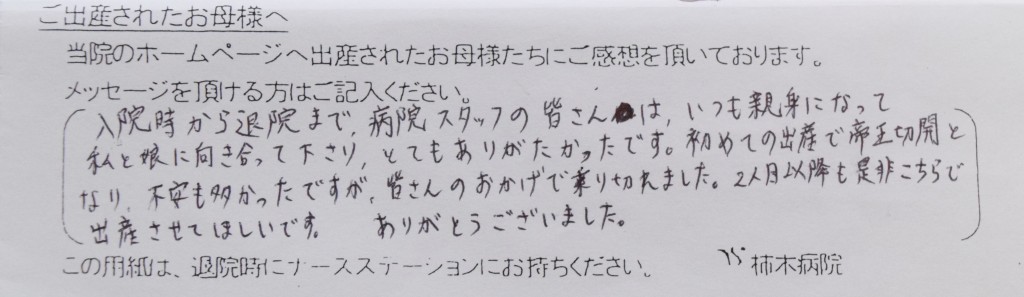 ご出産されたお母様へ
当院のホームページへ出産されたお母様たちにご感想を頂いております。
メッセージを頂ける方はご記入ください。
入院時から退院まで、病院スタッフの皆さんは、いつも親身になって
私と娘に向き合って下さり、とてもありがたかったです。初めての出産で帝王切開と
なり、不安も多かったですが、皆さんのおかげで乗り切れました。2人目以降も是非こちらで
出産させてほしいです。 ありがとうございました。
この用紙は、退院時にナースステーションにお持ちください。 柿木病院